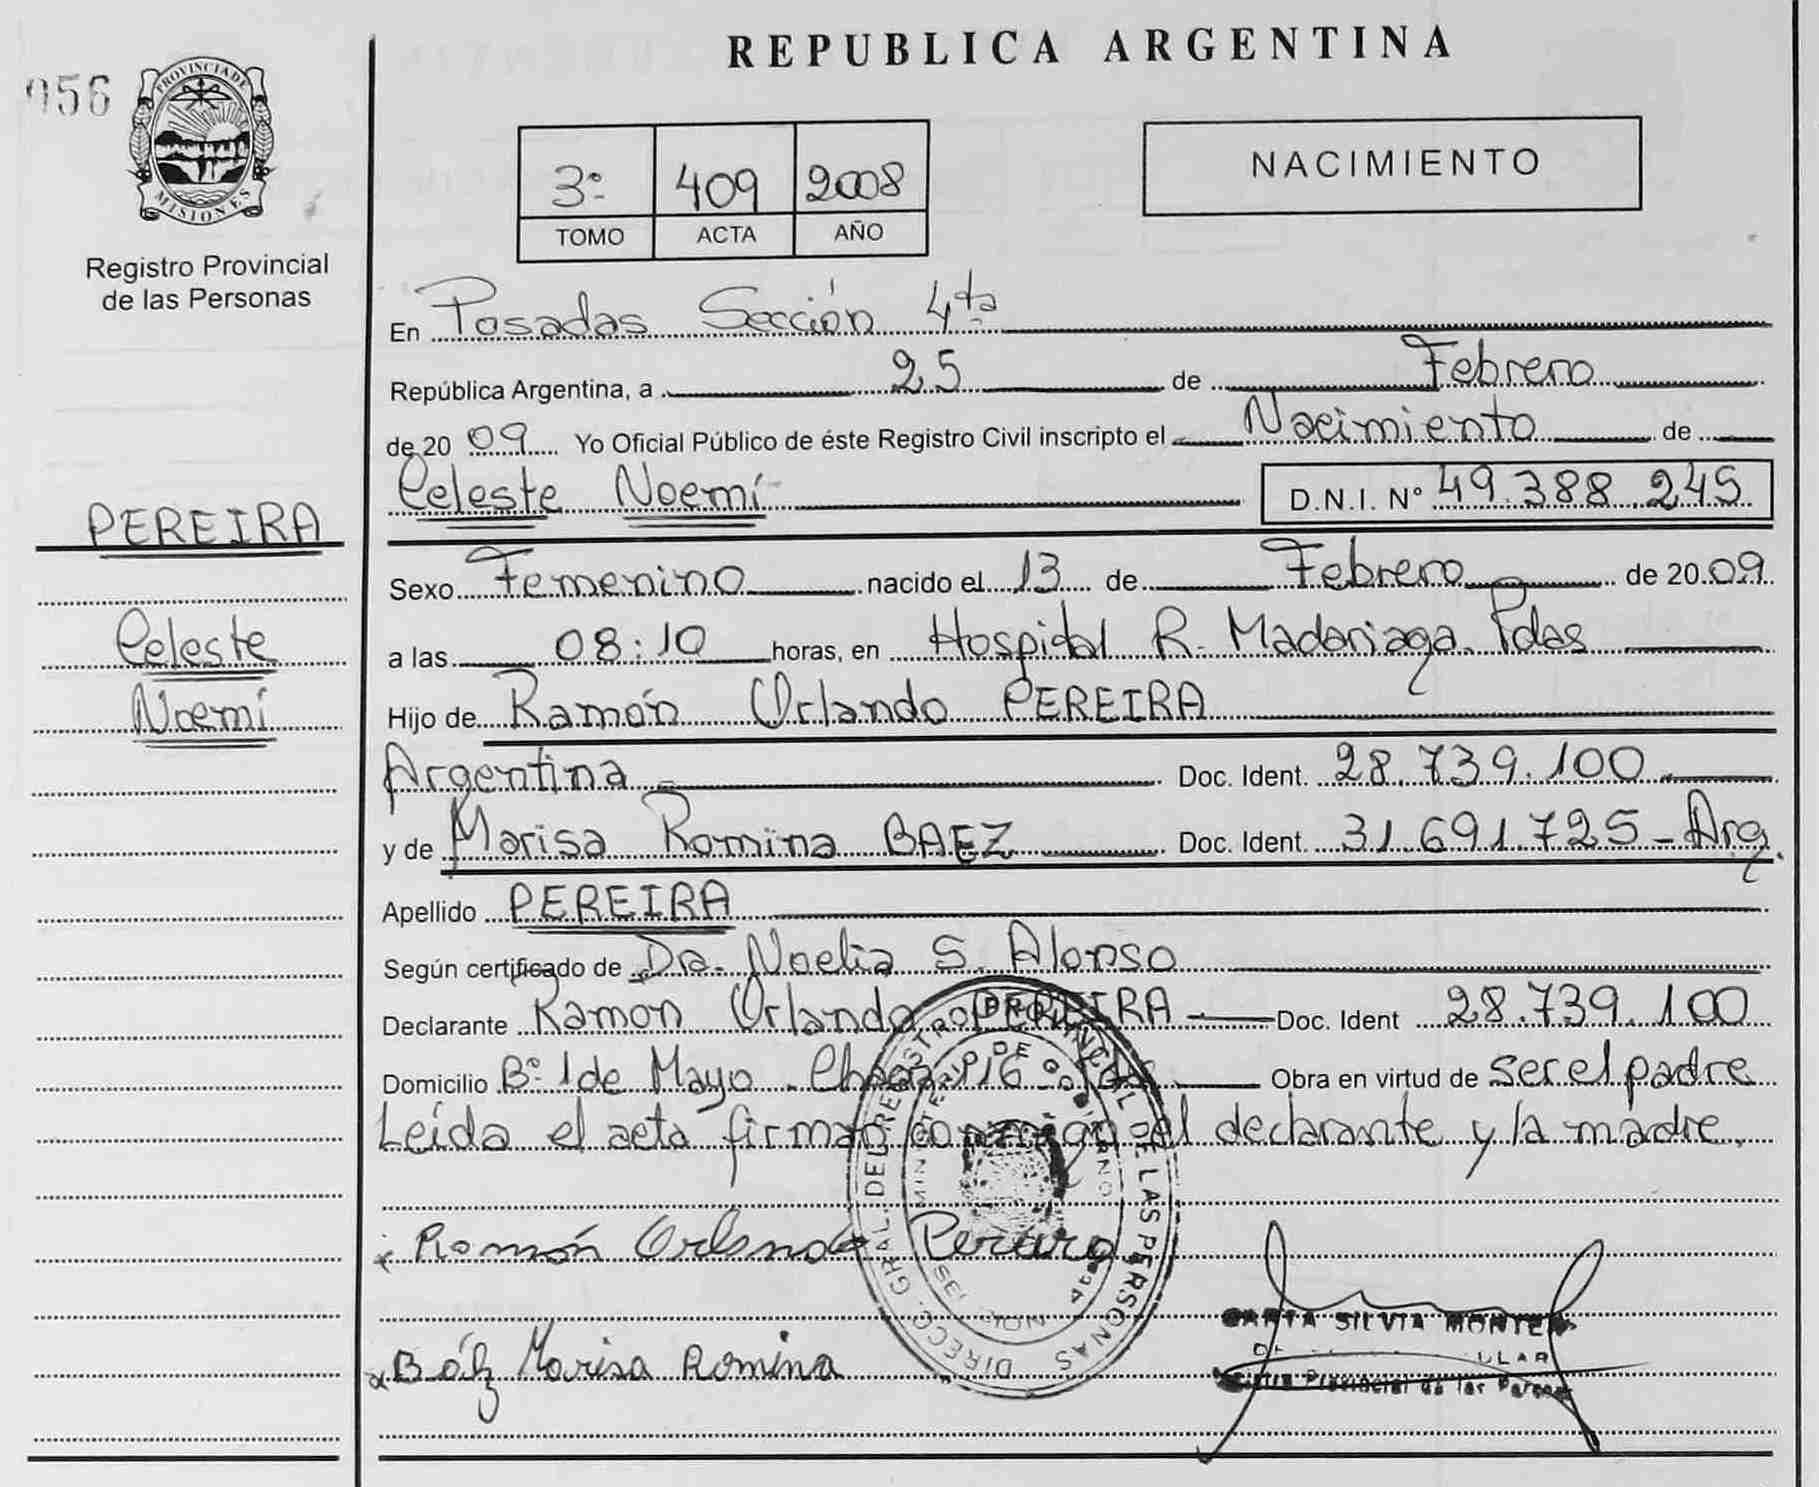 REPUBLICA ARGENTINA
056
PROVINCIA DE
MISIONES
Registro Provincial
de las Personas
3º 409 2008
TOMO ACTA AÑO
NACIMIENTO
En Posadas Sección 4ta
República Argentina, a 25 de Febrero
de 2009 Yo Oficial Público de éste Registro Civil inscripto el Nacimiento de
Celeste Noemí D.N.I. Nº 49.388.245
PEREIRA
Celeste
Noemí
Sexo Femenino nacido el 13 de Febrero de 2009
a las 08:10 horas, en Hospital R. Madariaga. Pdas
Hijo de Ramón Orlando PEREIRA
Argentina Doc. Ident. 28.739.100
y de Marisa Romina BAEZ Doc. Ident. 31.691.725 - Arg.
Apellido PEREIRA
Según certificado de Dra. Noelia S. Alonso
Declarante Ramón Orlando PEREIRA Doc. Ident 28.739.100
Domicilio Bº 1 de Mayo - Chacra 116 - Pdas Obra en virtud de ser el padre
Leída el acta firman conmigo el declarante y la madre.
Ramón Orlando Pereira
DIRECC. GRAL. DEL REGISTRO PROVINCIAL DE LAS PERSONAS
MINISTERIO DE GOBIERNO
SILVIA
Provincial de las
Báez Marisa Romina